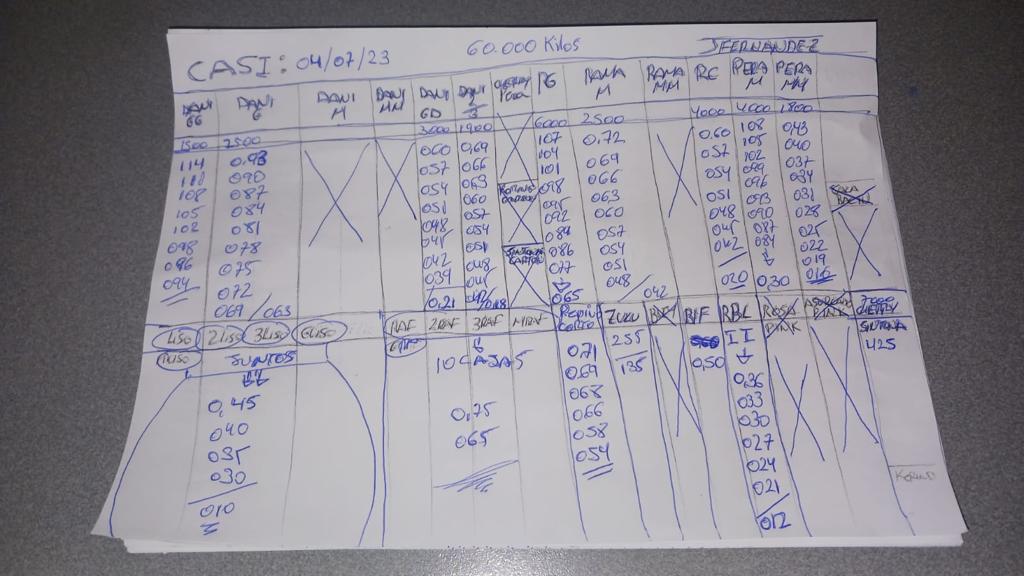 CASI: 04/07/23 60.000 Kilos JFERNANDEZ
DANI GG DANI G DANI M DANI MM DANI GD DANI PG RAMA M RAMA MM RG PERA M PERA MM
1500 7500 3000 1900 6000 2500 4000 4000 1800
114 0.93 060 0,69 107 0.72 0.60 108 0,43
111 090 057 066 104 0.69 057 105 040
108 087 054 063 101 066 054 102 037
105 084 051 060 098 063 051 099 034
102 081 048 057 095 060 048 096 031
098 078 045 054 092 057 045 093 028
096 075 042 051 089 054 042 090 025
094 072 039 048 086 051 020 087 022
069/063 0,21 045 077 048/042 084 019
065 0,30 016
1LISO 2LISO 3LISO GLISO 1RAF 2RAF 3RAF MRAF PEPINO CORTO ZUKU RF RBL ROSA PINK
JUNTOS 10 CAJAS 0,71 255 0,50 II SULTANA
0,45 0,75 069 135 0,36 425
040 065 068 033
035 0.66 030
030 058 027
010 054 024
021
012